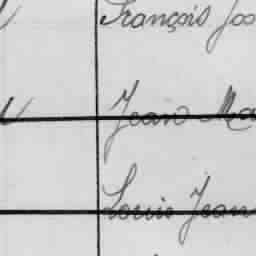 François Jos
Jean Ma
Louis Jean